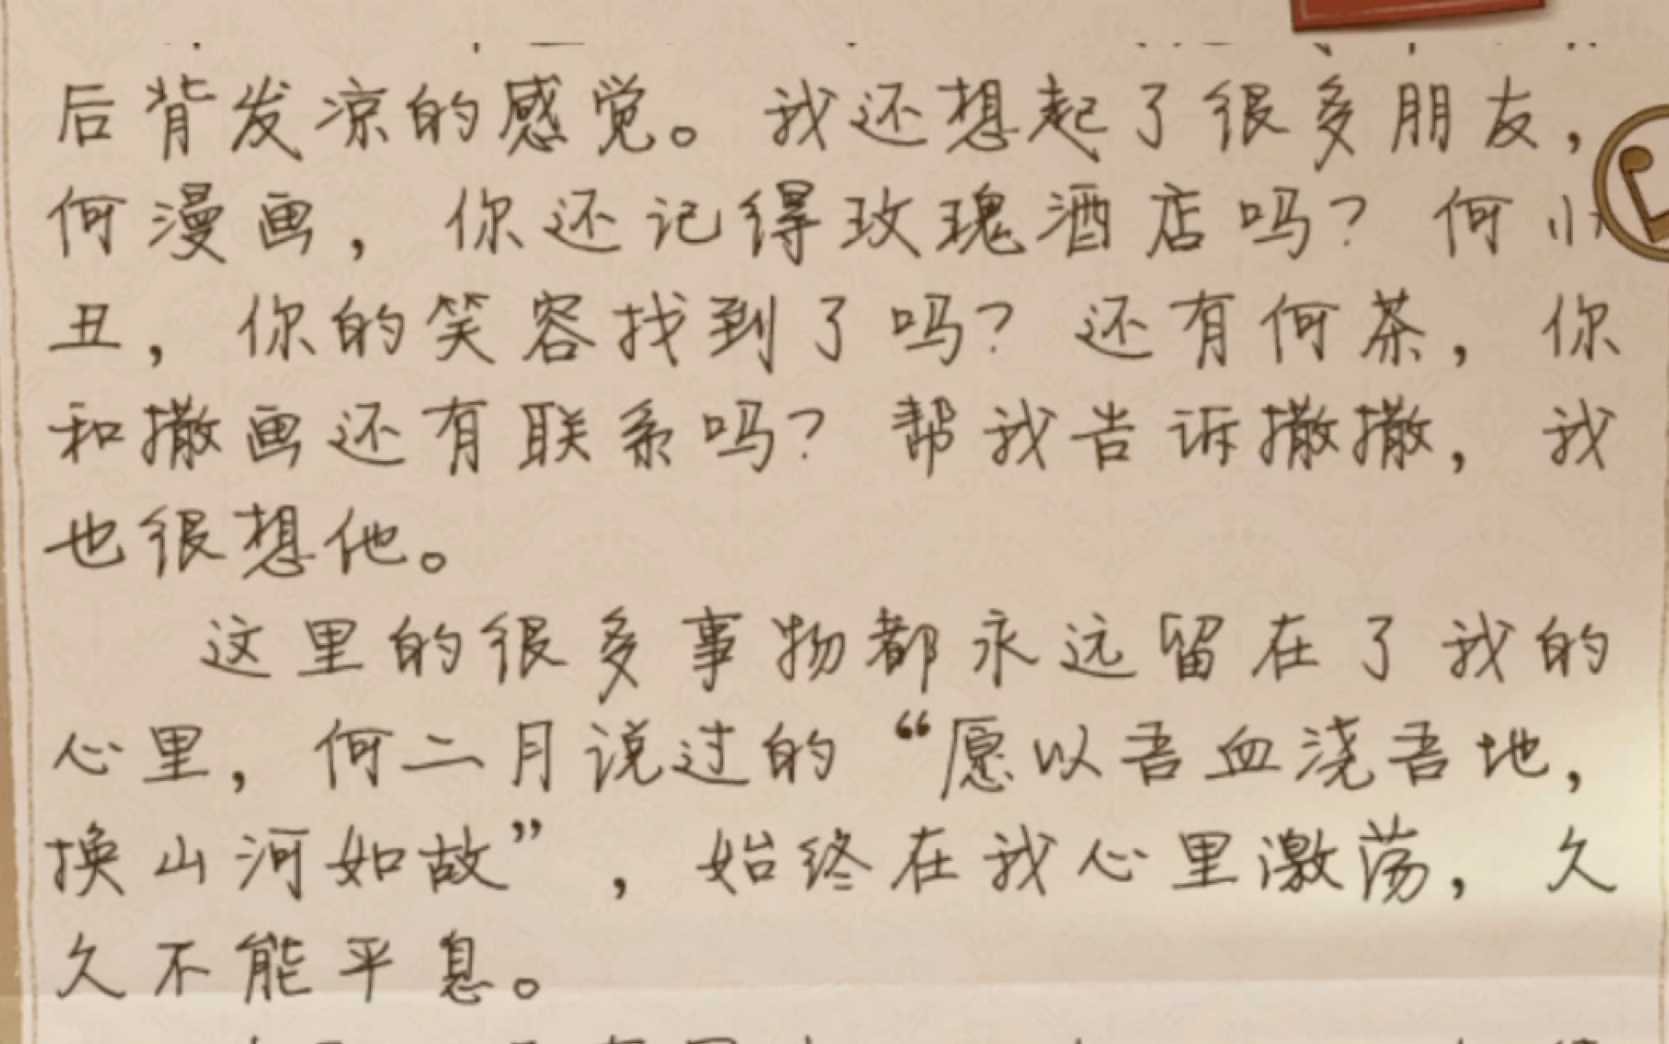 后背发凉的感觉。我还想起了很多朋友，
何漫画，你还记得玫瑰酒店吗？何小
丑，你的笑容找到了吗？还有何茶，你
和撒画还有联系吗？帮我告诉撒撒，我
也很想他。
这里的很多事物都永远留在了我的
心里，何二月说过的“愿以吾血浇吾地，
换山河如故”，始终在我心里激荡，久
久不能平息。